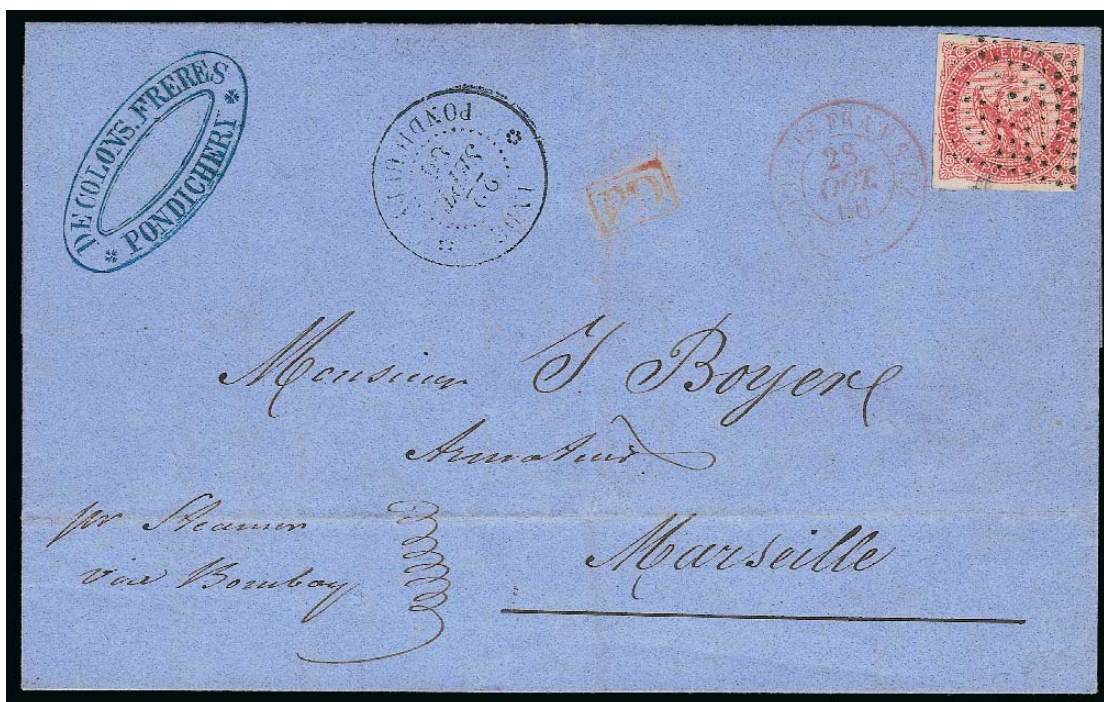 DE COLONS. FRERES
PONDICHERY
INDE
PONDICHERY
27
SEPT
P.D.
28
OCT.
COLONIES DE L'EMPIRE FRANÇAIS
POSTES
Monsieur J Boyer
Armateur
Marseille
per Steamer
via Bombay